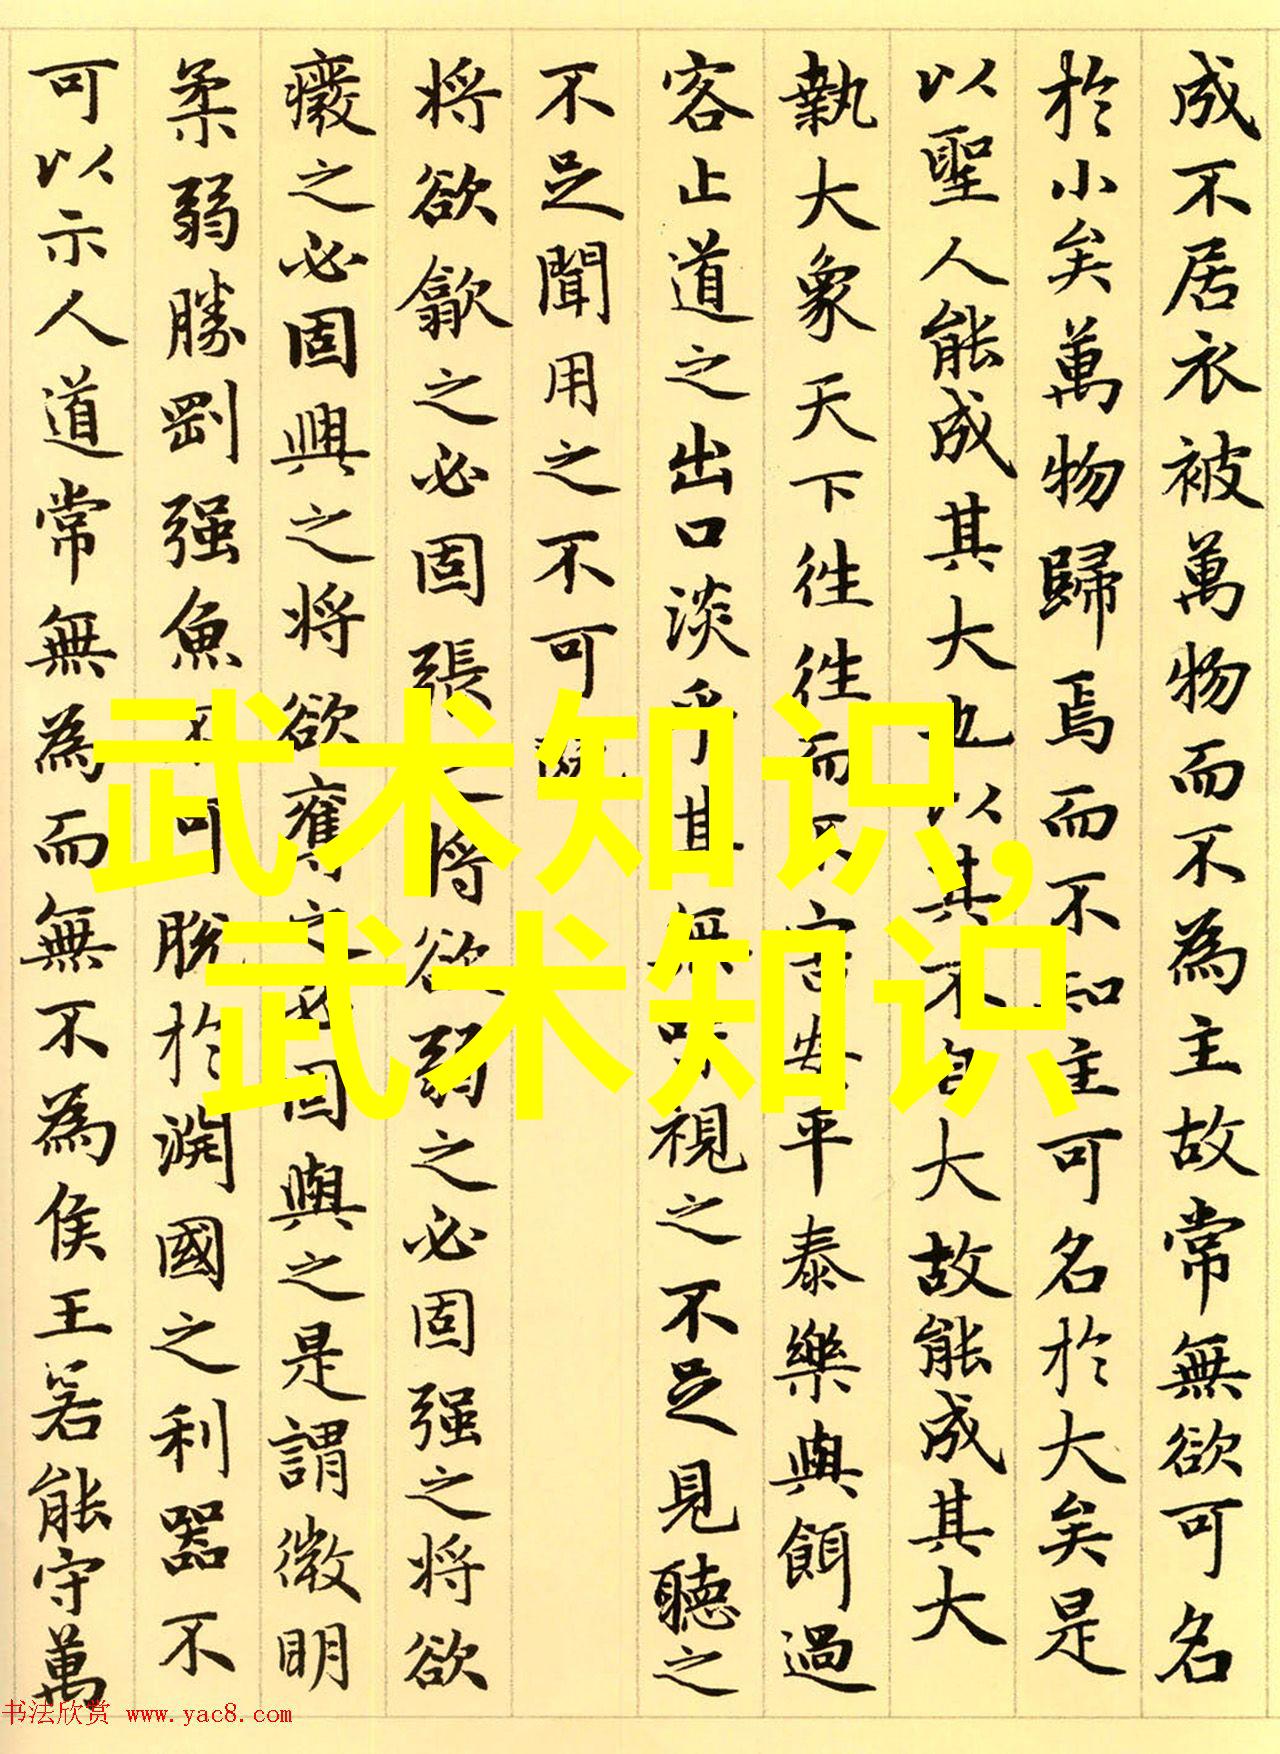 成不居衣被萬物而不為主故常無欲可名
於小矣萬物歸焉而不知主可名於大矣是
以聖人能成其大也以其不自大故能成其大
執大象天下往往而不害安平泰樂與餌過
客止道之出口淡乎其無味視之不足見聽之
不足聞用之不可既
将欲歙之必固張之将欲弱之必固强之将欲
癈之必固興之将欲奪之必固與之是謂微明
柔弱勝剛强魚不可脫於淵國之利器不
可以示人道常無為而無不為侯王若能守萬
武术知识,
武术知识
书法欣赏 www.yac8.com